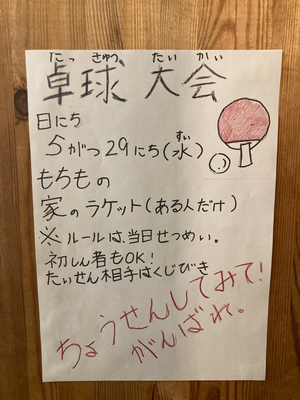 たっきゅう たいかい
卓球 大会
日にち
5がつ29にち(水)
すい
もちもの
家のラケット(ある人だけ)
※ルールは、当日せつめい。
初しん者もOK!
たいせん相手はくじびき
ちょうせんしてみて!
がんばれ。